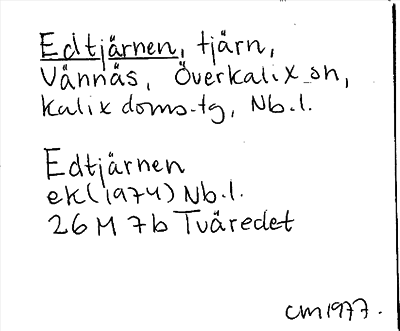 Edtjärnen, tjärn,
Vännäs, Överkalix sn,
Kalix doms.tg, Nb.l.
Edtjärnen
ek (1974) Nb.l.
26 M 7b Tväredet
CM 1977.